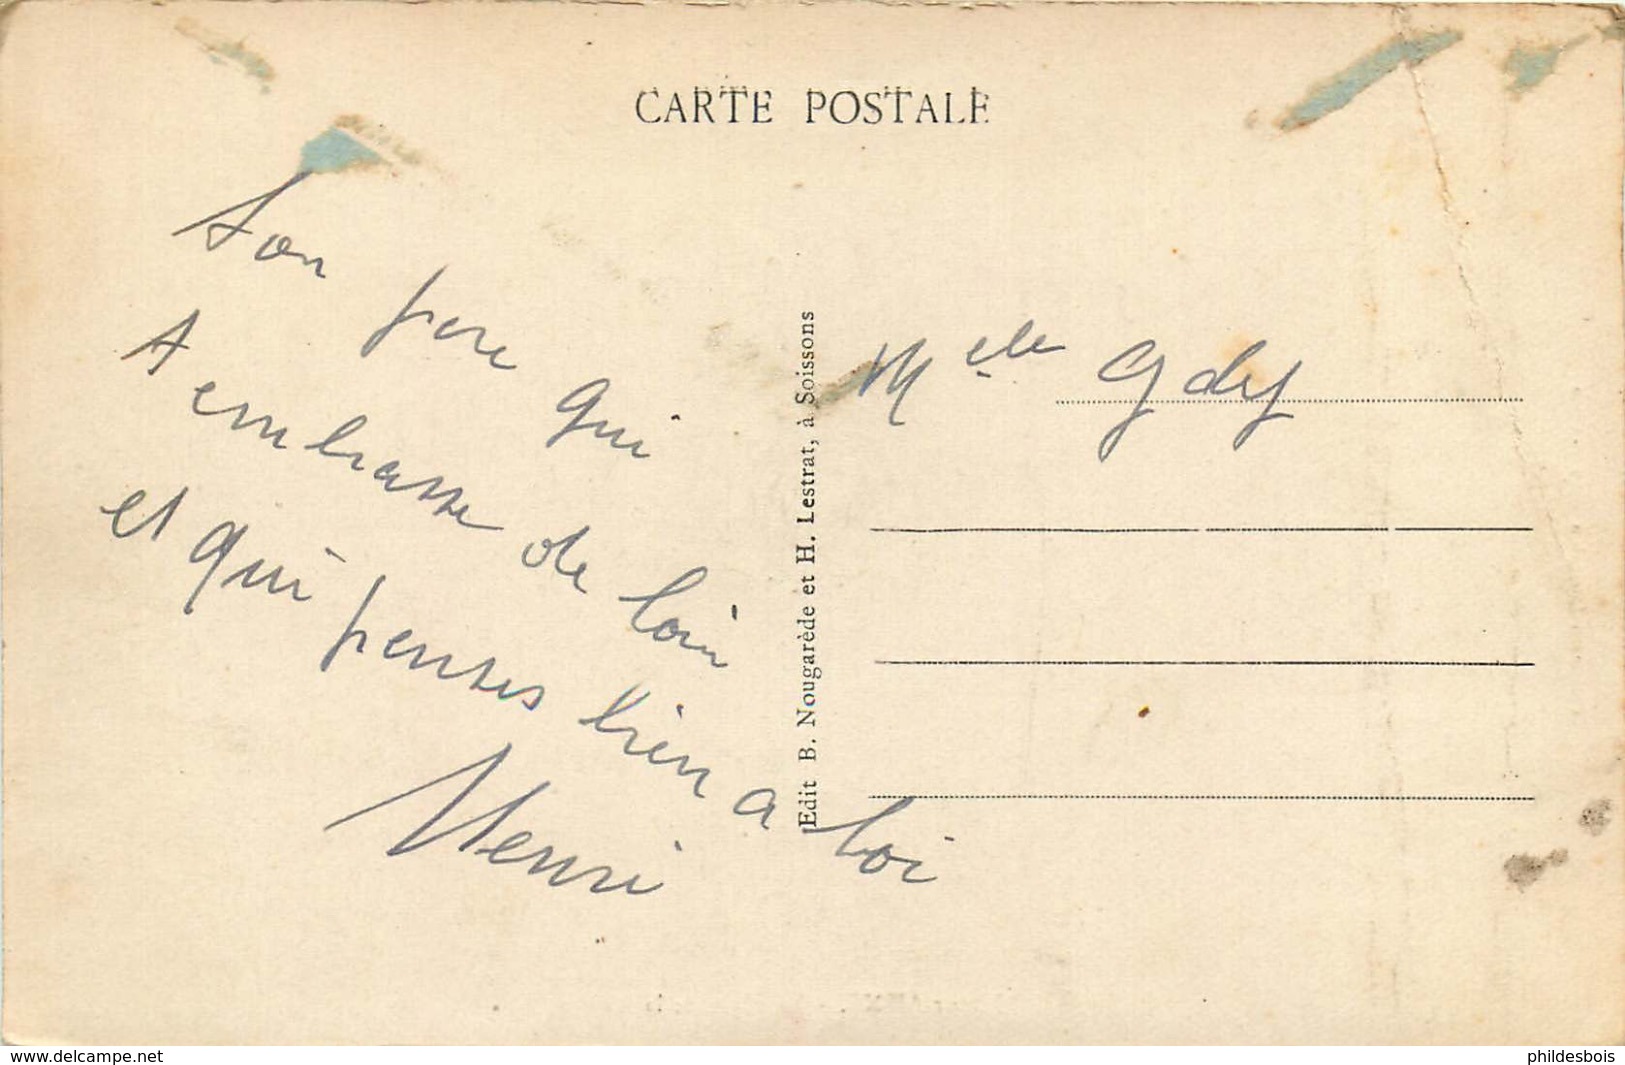 CARTE POSTALE
Ton pere qui
t embrasse de loin
et qui penses bien a toi
Henri
Edit B. Nougarède et H. Lestrat, à Soissons
Melle
www.delcampe.net
phildesbois